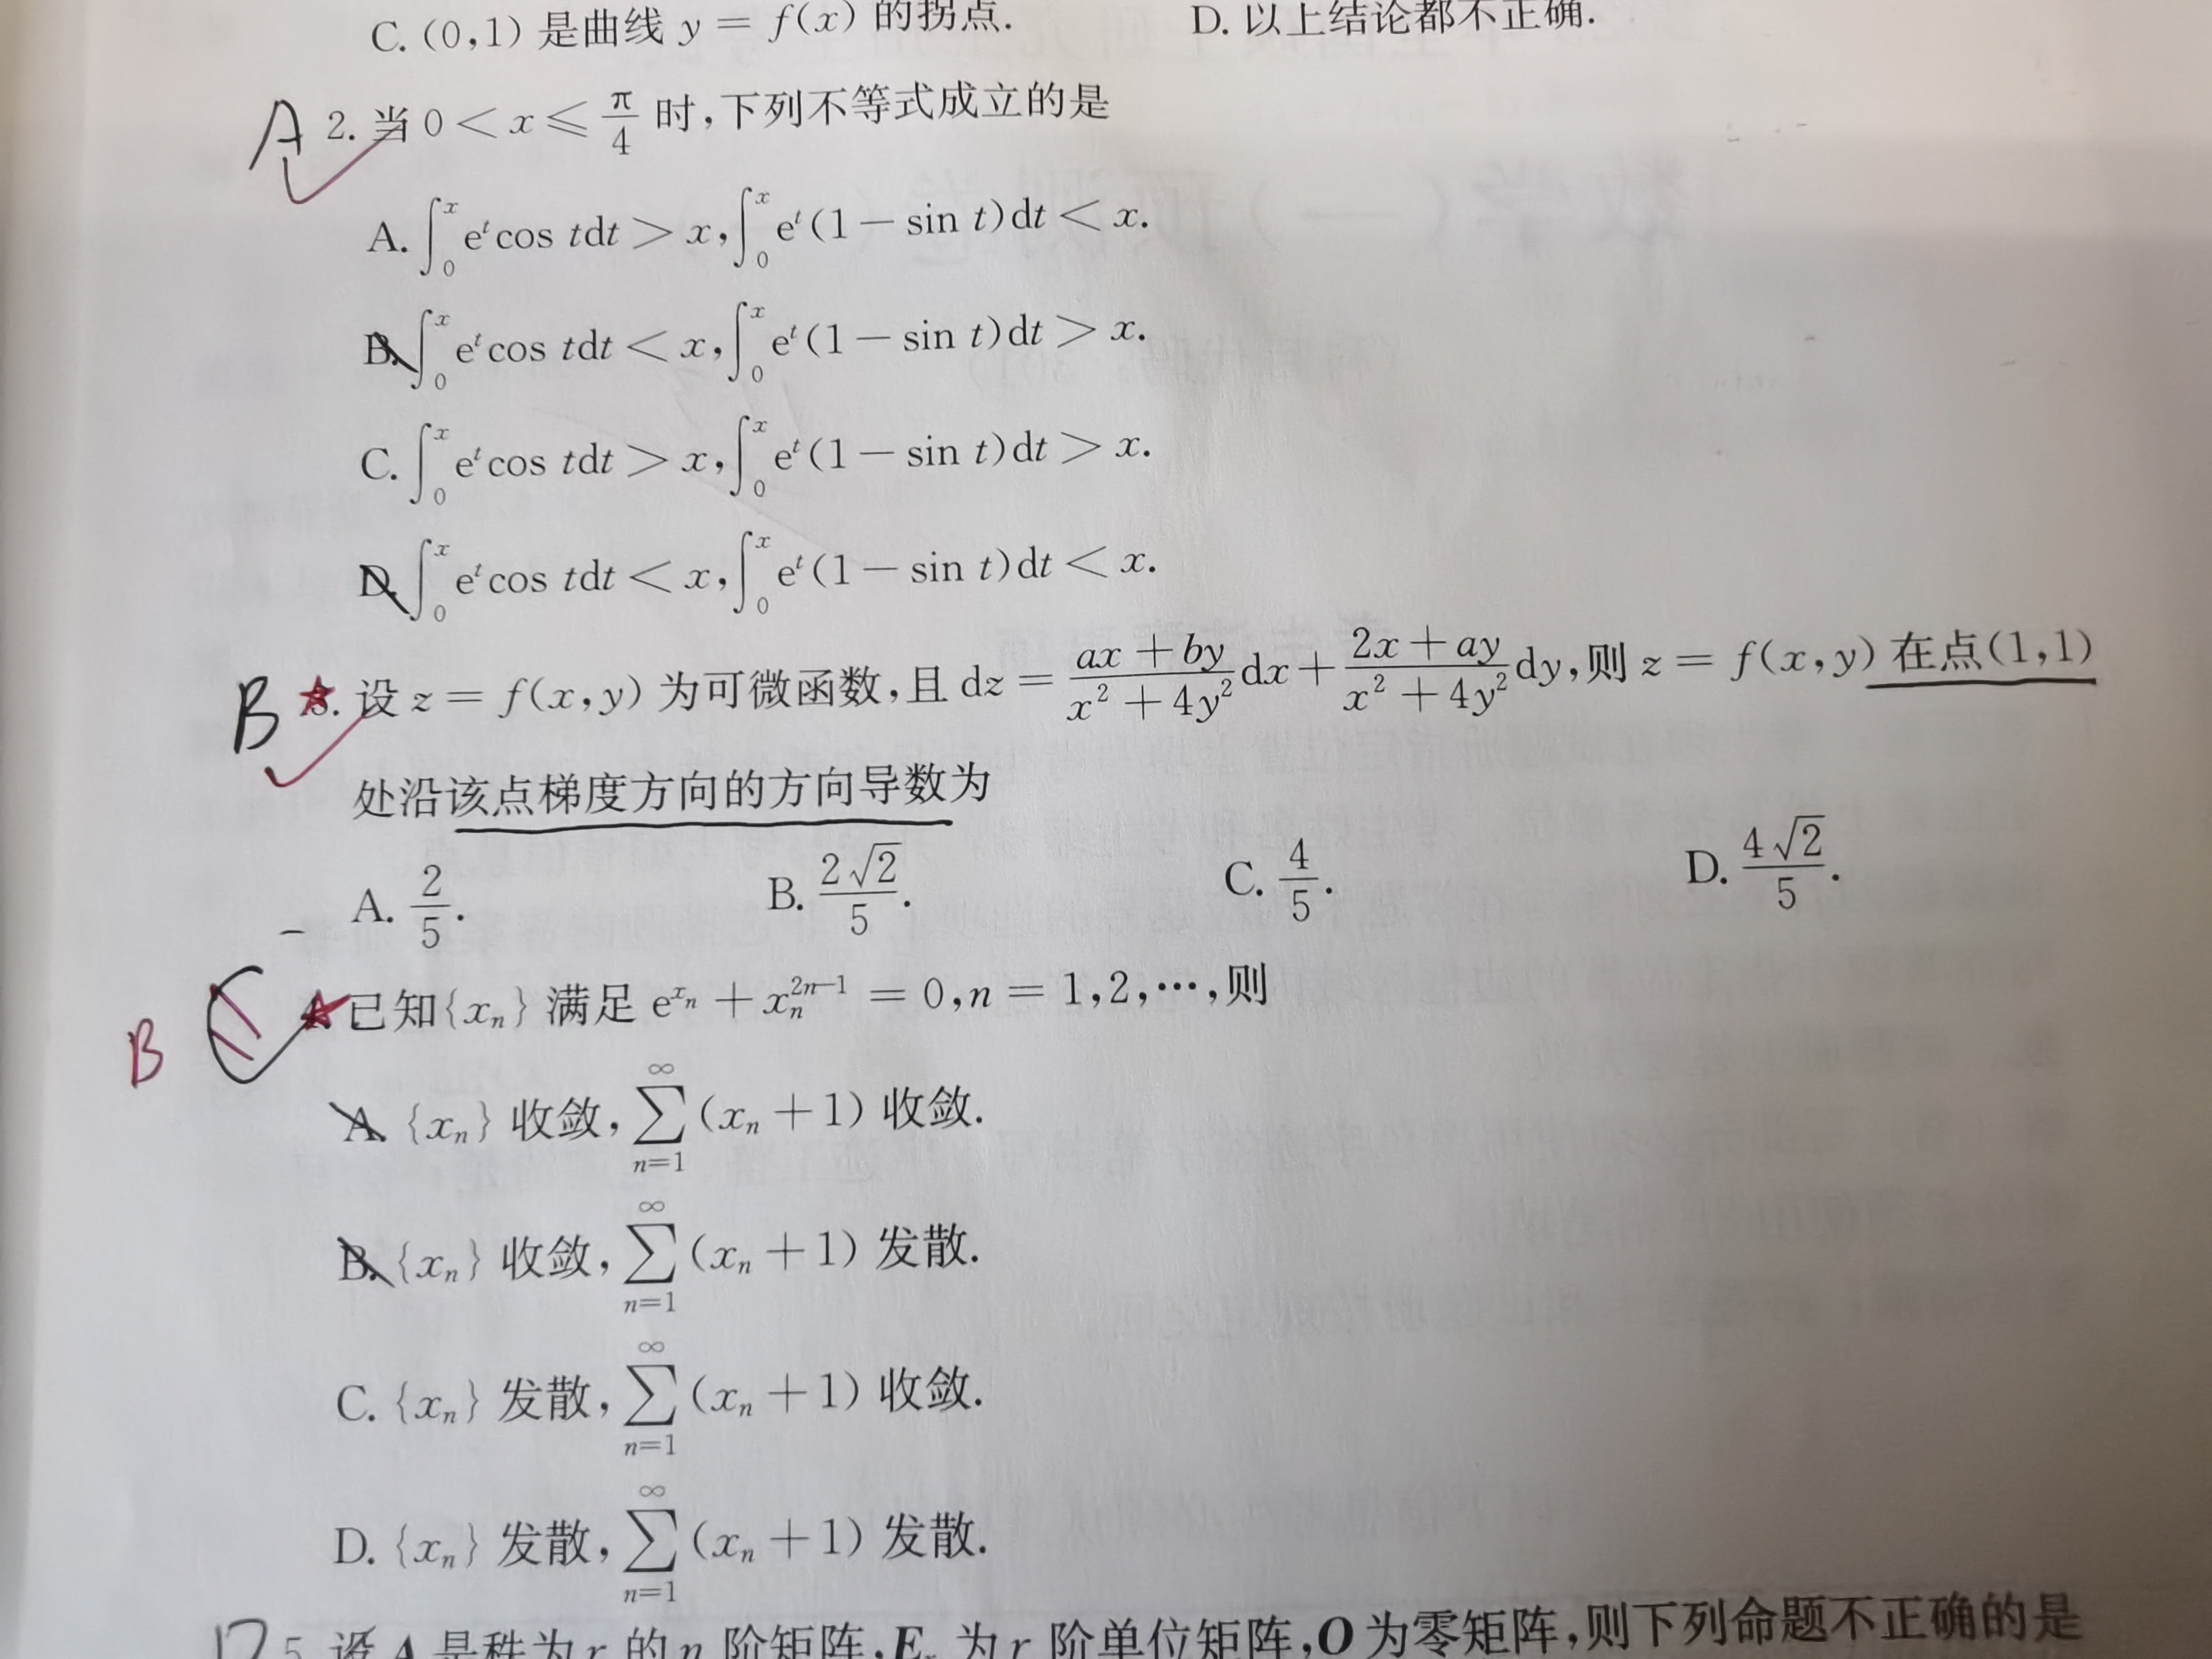 C. (0,1) 是曲线 y = f(x) 的拐点. D. 以上结论都不正确.
A 2. 当 0 < x ⩽ π/4 时,下列不等式成立的是
A. ∫₀ˣ eᵗcos tdt > x, ∫₀ˣ eᵗ(1 − sin t)dt < x.
B. ∫₀ˣ eᵗcos tdt < x, ∫₀ˣ eᵗ(1 − sin t)dt > x.
C. ∫₀ˣ eᵗcos tdt > x, ∫₀ˣ eᵗ(1 − sin t)dt > x.
D. ∫₀ˣ eᵗcos tdt < x, ∫₀ˣ eᵗ(1 − sin t)dt < x.
B 3. 设 z = f(x,y) 为可微函数,且 dz = (ax + by)/(x² + 4y²) dx + (2x + ay)/(x² + 4y²) dy,则 z = f(x,y) 在点(1,1)
处沿该点梯度方向的方向导数为
A. 2/5. B. 2√2/5. C. 4/5. D. 4√2/5.
B C 4. 已知{xₙ} 满足 e^{xₙ} + xₙ^{2n−1} = 0,n = 1,2,⋯,则
A. {xₙ} 收敛, ∑_{n=1}^{∞} (xₙ + 1) 收敛.
B. {xₙ} 收敛, ∑_{n=1}^{∞} (xₙ + 1) 发散.
C. {xₙ} 发散, ∑_{n=1}^{∞} (xₙ + 1) 收敛.
D. {xₙ} 发散, ∑_{n=1}^{∞} (xₙ + 1) 发散.
5. 设 A 是秩为 r 的 n 阶矩阵,Eᵣ 为 r 阶单位矩阵,O 为零矩阵,则下列命题不正确的是